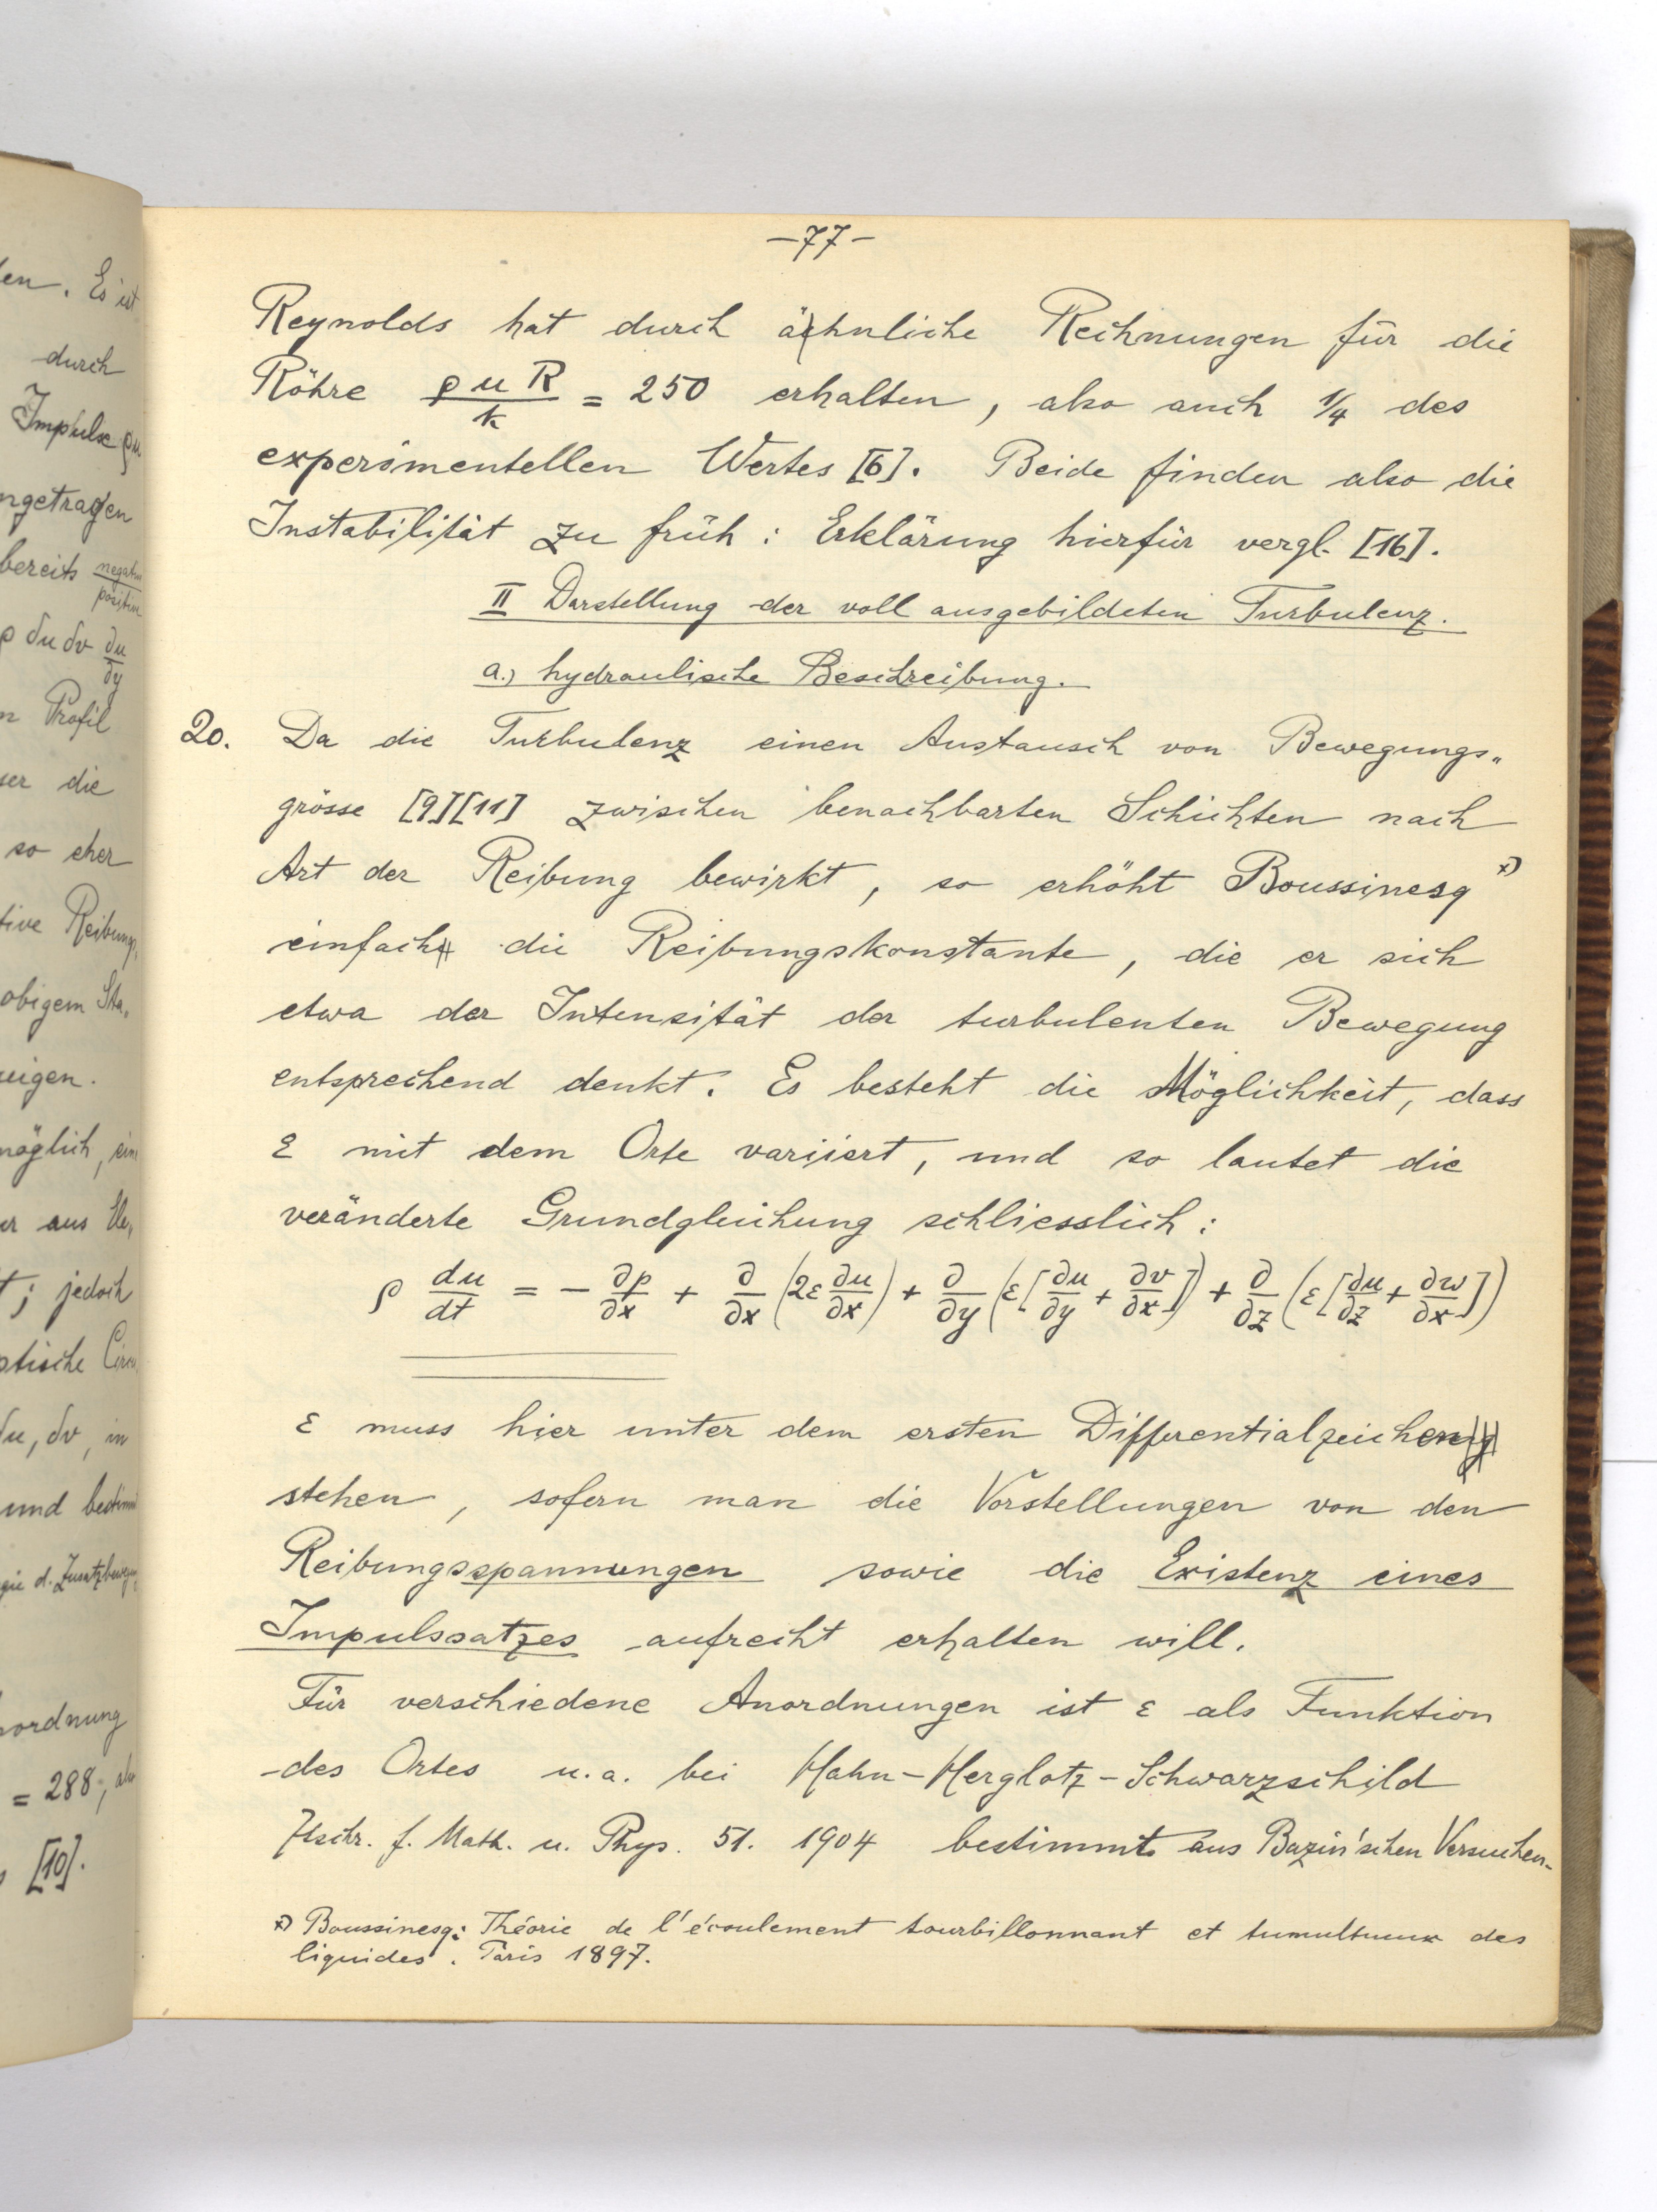 en. Es ist
durch
Impulse ρu
ngetragen
bereits negativ
positiv
ρ δu δv ∂u/∂y
n Profil
ser die
so eher
tive Reibungs„
obigem
eigen.
möglich, ein
er aus
t; jedoch
ptische
δu, δv, in
und bestimmt
gie d. Zusatzbeweg
nordnung
= 288, also
[10].
-77-
Reynolds hat durch ähnliche Rechnungen für die
Röhre ρuR/k = 250 erhalten, also auch 1/4 des
experimentellen Wertes [6]. Beide finden also die
Instabilität zu früh: Erklärung hierfür vergl. [16].
II Darstellung der voll ausgebildeten Turbulenz.
a.) hydraulische Beschreibung.
20. Da die Turbulenz einen Austausch von Bewegungs„
grösse [9][11] zwischen benachbarten Schichten nach
Art der Reibung bewirkt, so erhöht Boussinesq x)
einfach die Reibungskonstante, die er sich
etwa der Intensität der turbulenten Bewegung
entsprechend denkt. Es besteht die Möglichkeit, dass
ε mit dem Orte variiert, und so lautet die
veränderte Grundgleichung schliesslich:
ρ du/dt = - ∂p/∂x + ∂/∂x (2ε ∂u/∂x) + ∂/∂y (ε[∂u/∂y + ∂v/∂x]) + ∂/∂z (ε[∂u/∂z + ∂w/∂x])
ε muss hier unter dem ersten Differentialzeichen
stehen, sofern man die Vorstellungen von den
Reibungsspannungen sowie die Existenz eines
Impulssatzes aufrecht erhalten will.
Für verschiedene Anordnungen ist ε als Funktion
des Ortes u.a. bei Hahn-Herglotz-Schwarzschild
Ztschr. f. Math. u. Phys. 51. 1904 bestimmt aus Bazin'schen Versuchen.
x) Boussinesq: Théorie de l'écoulement tourbillonnant et tumultueux des
liquides. Paris 1897.